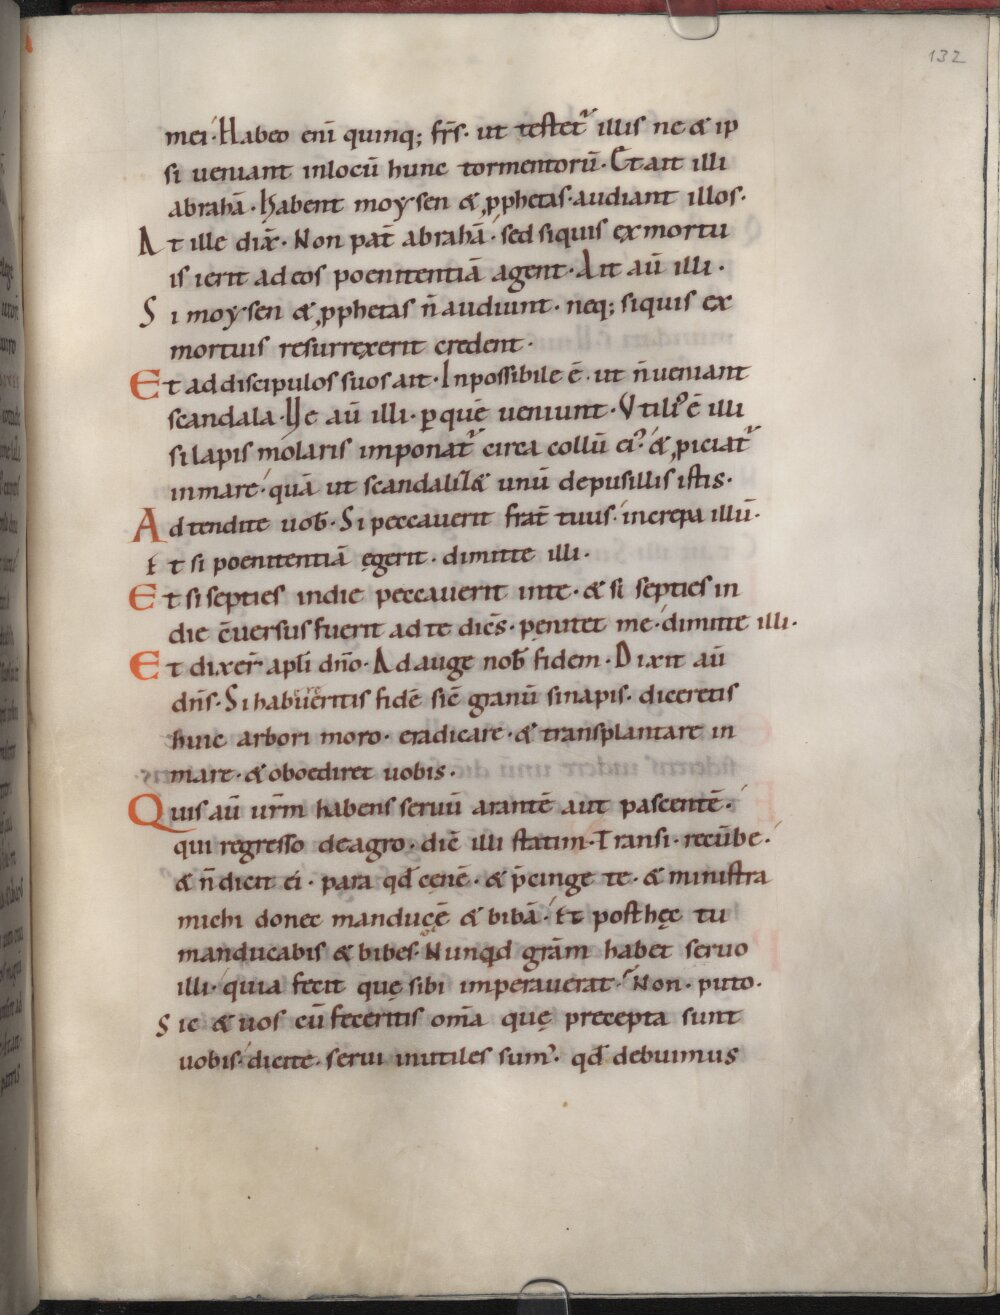 132
mei· Habeo eni̅ quinq; fr̅s· ut testet᷑ illis ne & ip
si ueniant inlocu̅ hunc tormentoru̅· Et ait illi
abraha̅· Habent moysen & ꝓphetas· audiant illos·
At ille dix̅· Non pat̅ abraha̅· sed siquis exmortu
is ierit adeos poenitentia̅ agent· Ait au̅ illi·
Si moysen & ꝓphetas n̅ audiunt· neq; siquis ex
mortuis resurrexerit credent·
Et addiscipulos suos ait· Inpossibile e̅· ut n̅ ueniant
scandala· Ve au̅ illi· ꝑ que̅ ueniunt· Utiliꝰ e̅ illi
silapis molaris imponat᷑ circa collu̅ eiꝰ· & ꝓiciat᷑
inmare· qua̅ ut scandaliz& unu̅ depusillis istis·
Adtendite uob̅· Si peccauerit frat̅ tuus· increpa illu̅·
Et si poenitentia̅ ęgerit· dimitte illi·
Et si septies indie peccauerit inte· & si septies in
die c̅uersus fuerit ad te dice̅s· pęnitet me· dimitte illi·
Et dixer̅ apl̅i dn̅o· Adauge nob̅ fidem· Dixit au̅
dn̅s· Si habueritis fide̅ sic̅ granu̅ sinapis· diceretis
huic arbori moro· eradicare· & transplantare in
mare· & oboediret uobis·
Quis au̅ ur̅m habens seruu̅ arante̅ aut pascente̅·
qui regresso deagro· dic̅ illi statim· Transi· recu̅be·
& n̅ dicit ei· para qd̅ cene̅· & p̅cinge te· & ministra
michi donec manduce̅ & biba̅· Et posthęc tu
manducabis & bibes· Nunqd gra̅m habet seruo
illi· quia fecit quę sibi imperauerat· Non· puto·
Sic & uos cu̅ feceritis om̅a quę precepta sunt
uobis· dicite· serui inutiles sumꝰ· qd̅ debuimus